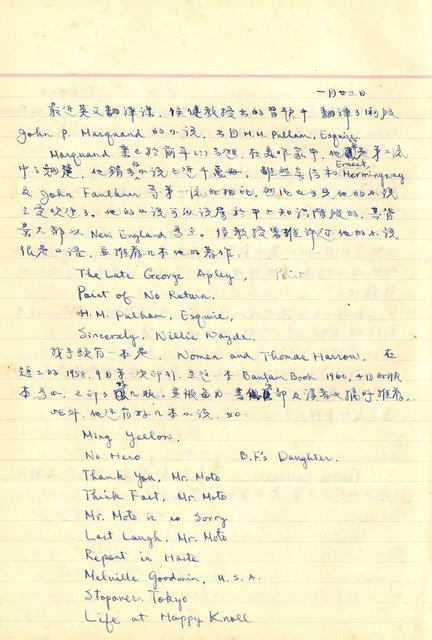 一月廿三日
最近英文翻譯課，侯健教授出的習題中，翻譯了兩段
John P. Marquand 的小說，書目 H.M. Pulham, Esquire.
Marquand 業已於前年 去世，在美作家中，他是第二流
中之翹楚，他銷 小說已逾千萬冊，雖然無法和 Ernest Hermingway
及 John Faulkner 等第一流的相比，然
之受歡迎了。他的小說可以說屬於中上知識階級的，其背
景大部以 New England 為主。侯教授 推許他的小說
很 口語，並推荐几本他的著作，
The Late George Apley, Point
Point of No Return,
H.M. Pulham, Esquire,
Sincerely, Willis Wayde.
我手頭有一本是， Women and Thomas Harrow. 在
1958, 9月第一次印行，至這一本 Bantam Book 1960, 4月的版
本為止，已印了 版，並被 推荐。
此外，他还有好几本小說，如：
Ming Yellow,
No Hero B.F.'s Daughter.
Thank You, Mr. Moto
Think Fast, Mr. Moto
Mr. Moto is so Sorry
Last Laugh, Mr. Moto
Repent in Haste
Melville Goodwin, U.S.A.
Stopover: Tokyo
Life at Happy Knoll